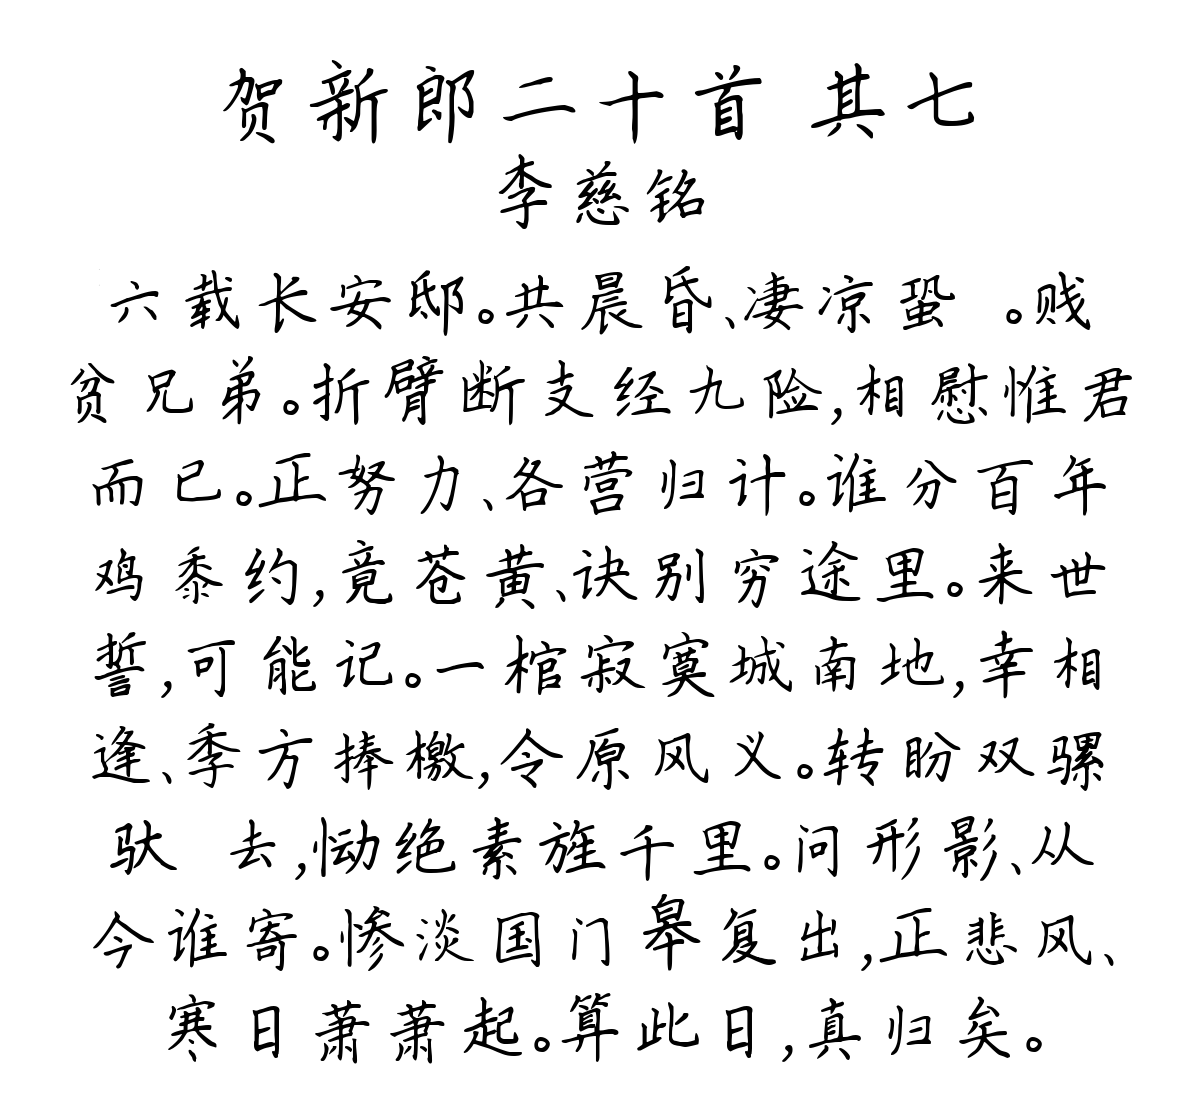 贺新郎二十首 其七
李慈铭
六载长安邸。共晨昏、凄凉蛩 。贱
贫兄弟。折臂断支经九险,相慰惟君
而已。正努力、各营归计。谁分百年
鸡黍约,竟苍黄、诀别穷途里。来世
誓,可能记。一棺寂寞城南地,幸相
逢、季方捧檄,令原风义。转盼双骡
驮 去,恸绝素旌千里。问形影、从
今谁寄。惨淡国门皋复出,正悲风、
寒日萧萧起。算此日,真归矣。